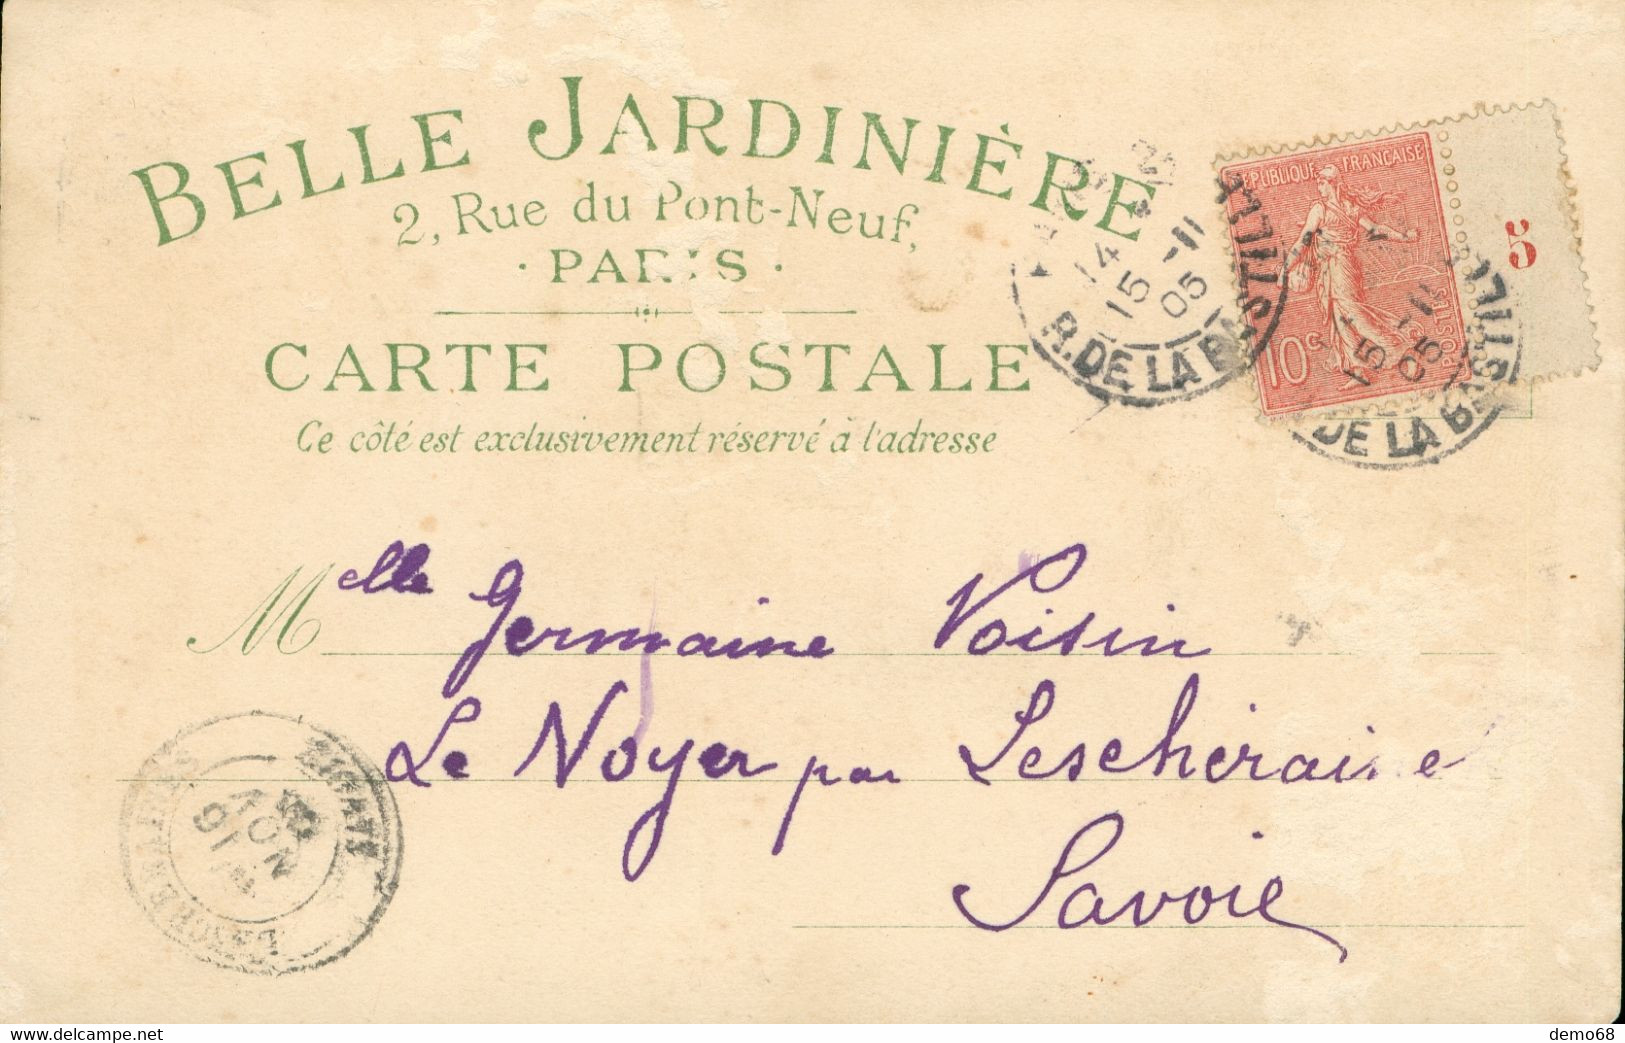 BELLE JARDINIÈRE
2, Rue du Pont-Neuf,
· PARIS ·
CARTE POSTALE
Ce côté est exclusivement réservé à l'adresse
RÉPUBLIQUE FRANÇAISE
POSTES
10c
5
14
15 -11
05
R. DE LA BASTILLE
15 -11
05
DE LA BASTILLE
Melle Germaine Voisin
Le Noyer par Lescheraine
Savoie
SAVOIE
16
NOV
05
www.delcampe.net
demo68